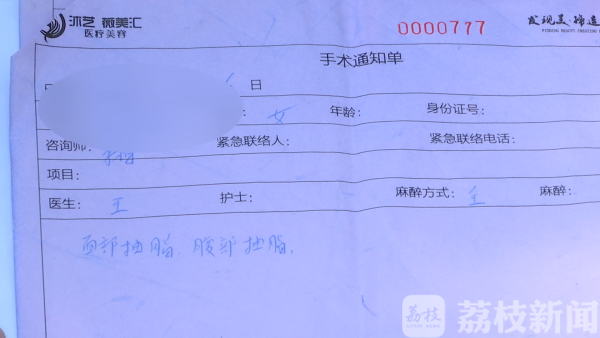 沐艺 薇美汇
医疗美容
0000777
发现美·缔造
手术通知单
日
女 年龄： 身份证号：
咨询师： 紧急联络人： 紧急联络电话：
项目：
医生： 王 护士： 麻醉方式： 全 麻醉：
面部抽脂，腹部抽脂，
荔枝
荔枝新闻